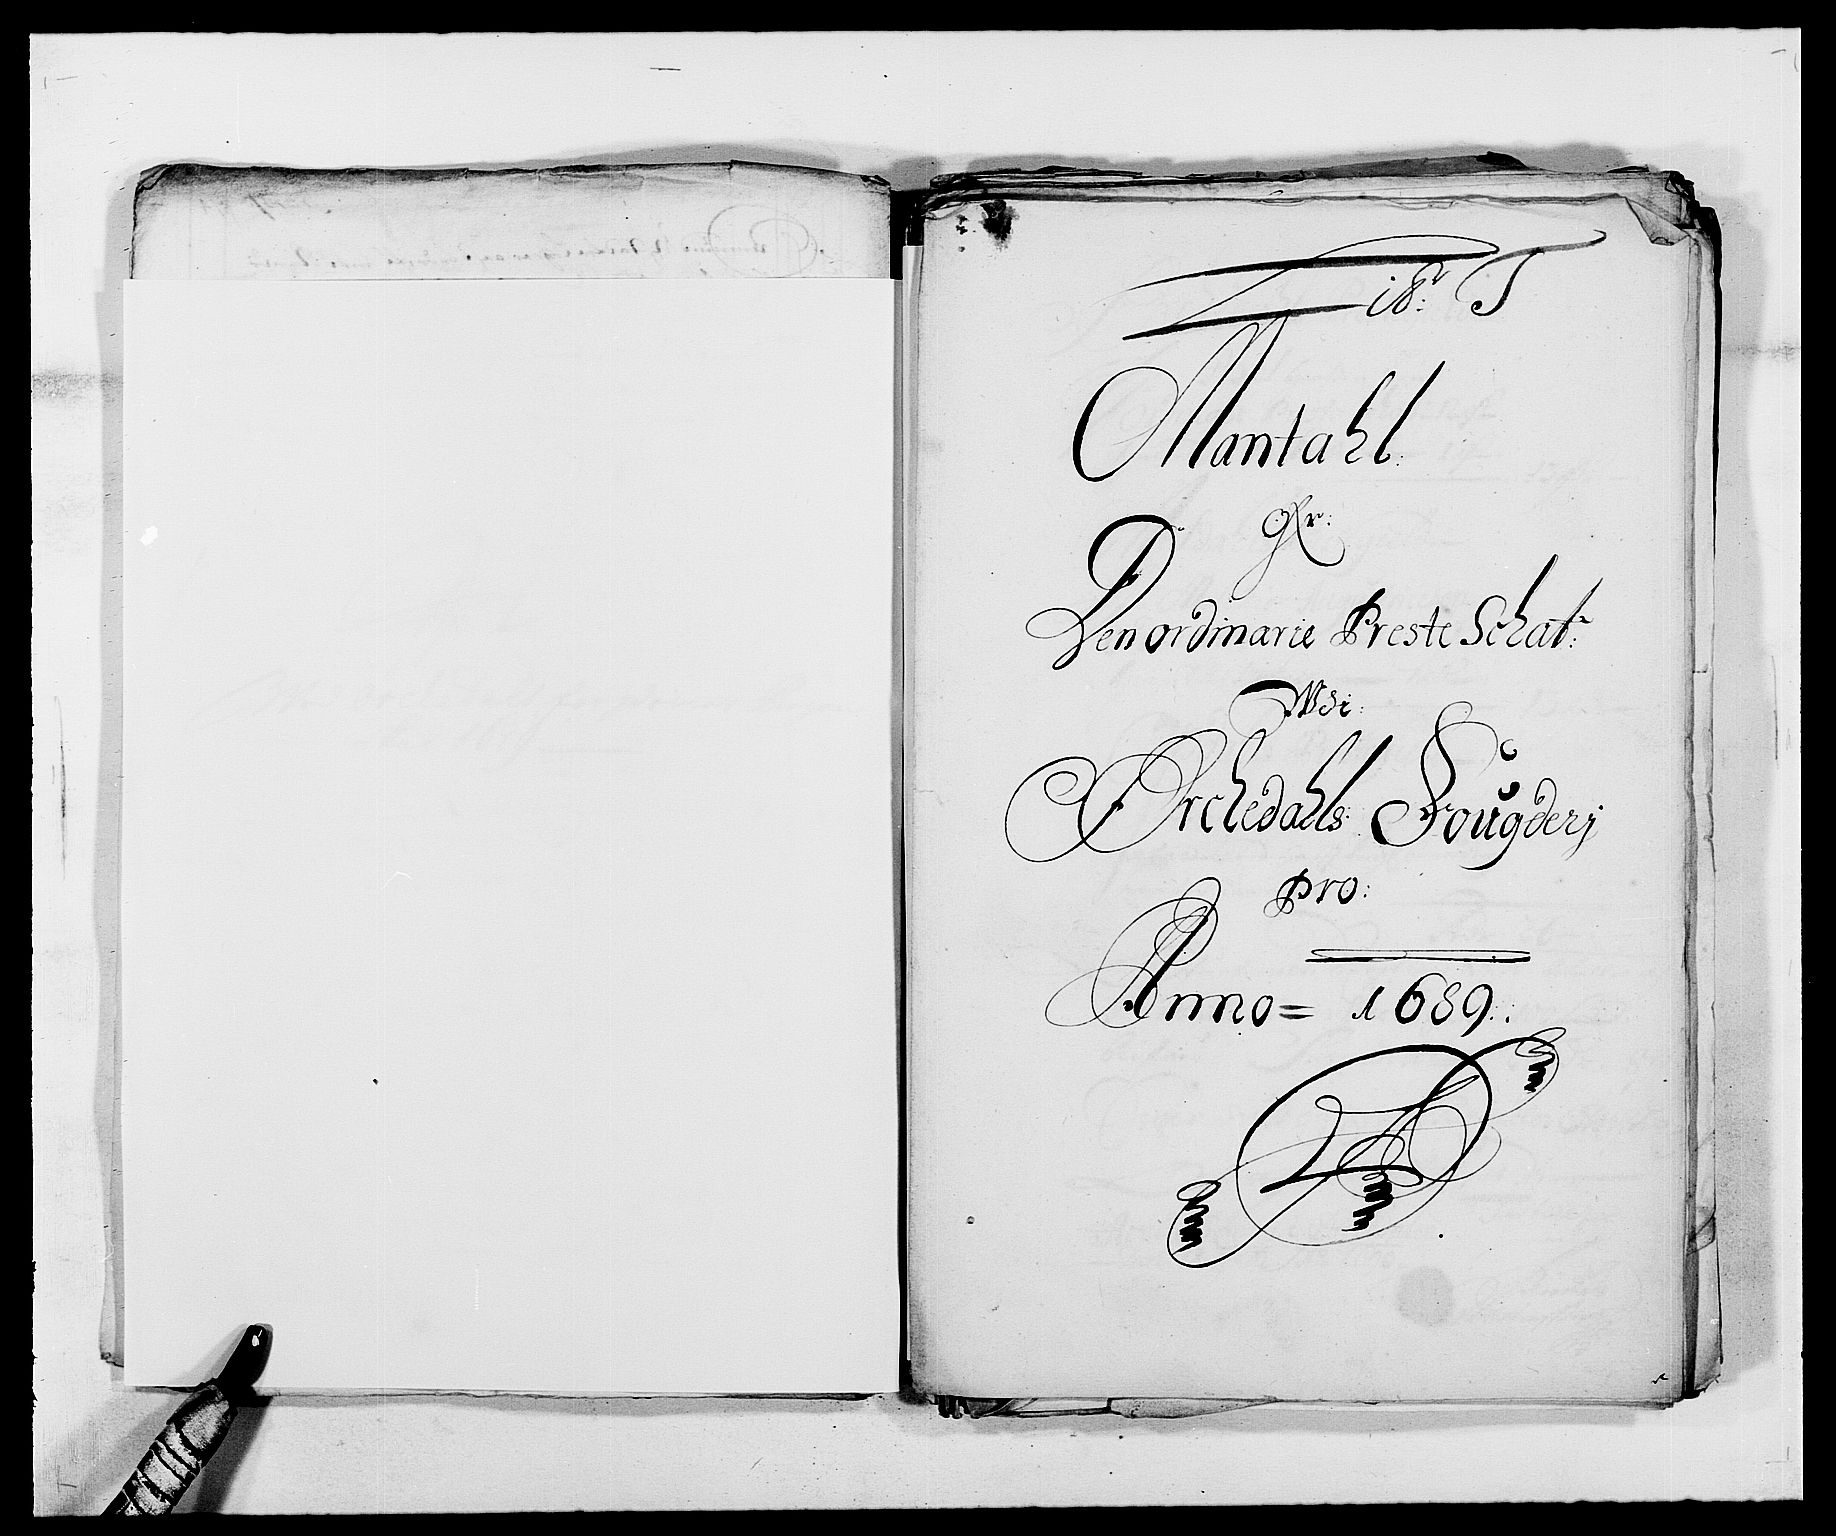 Lit: T
Mantahl
ofr:
Den ordinarie Preste Schat:
Udi:
Orchedahls Fougderj
pro:
Anno= 1689: